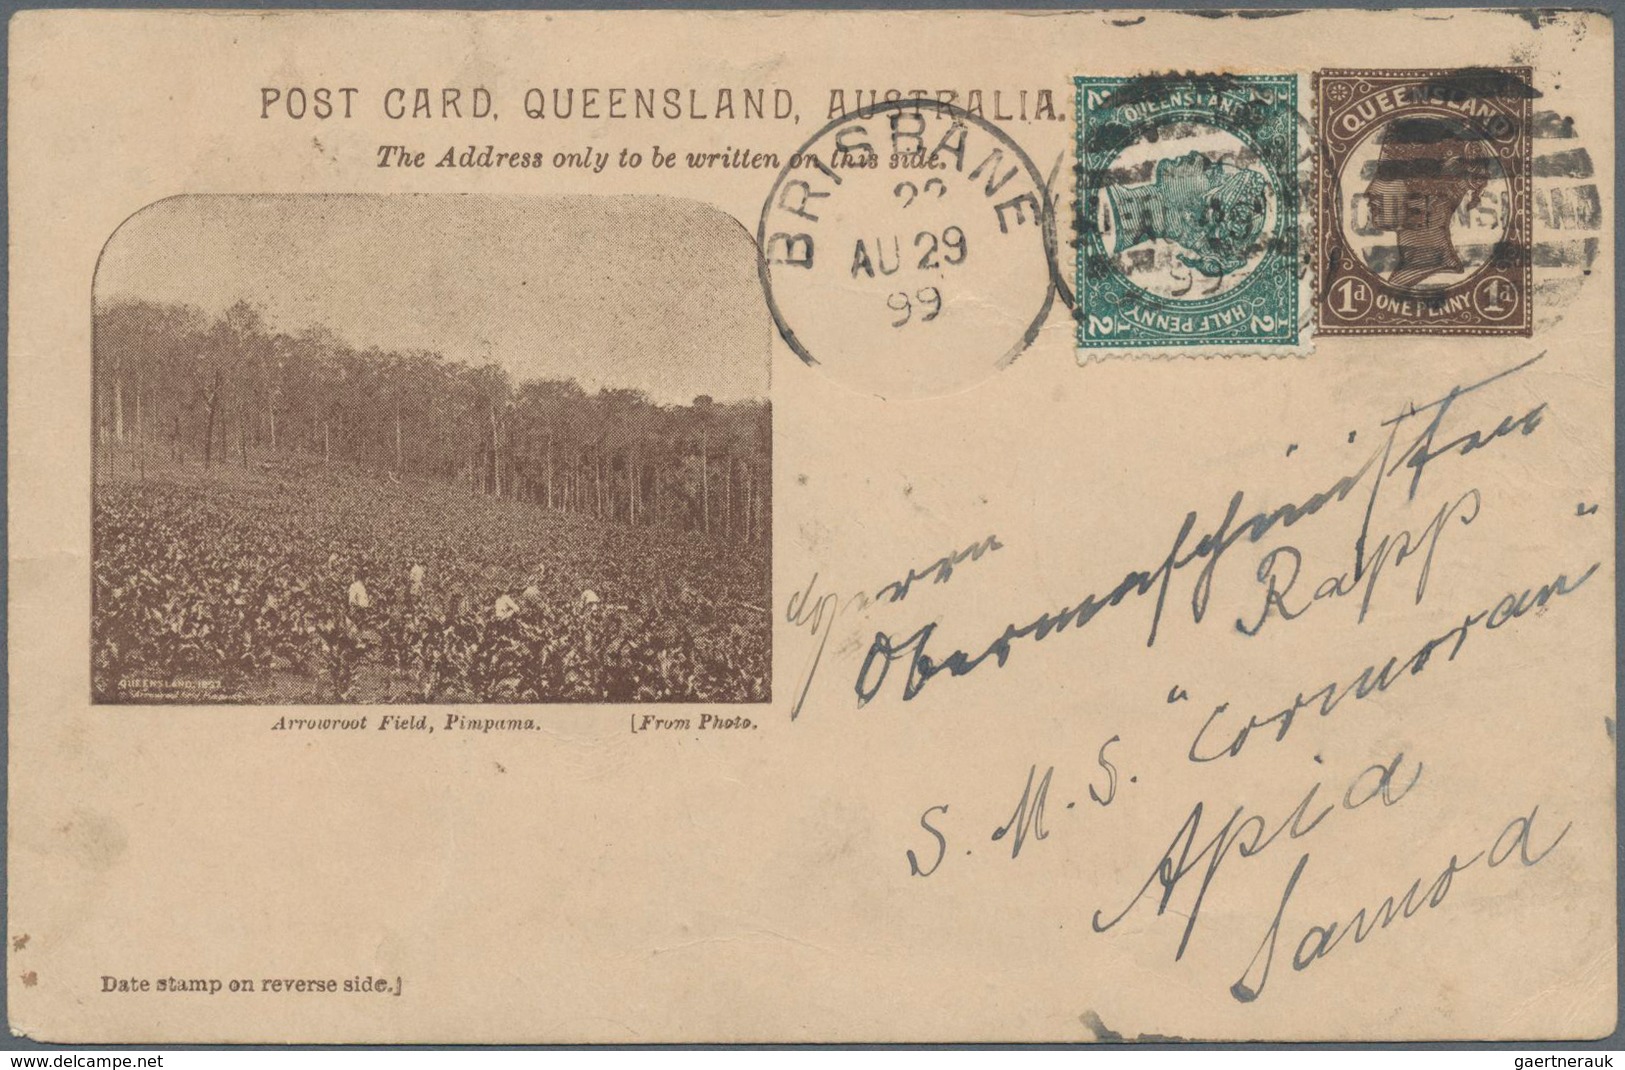 POST CARD, QUEENSLAND, AUSTRALIA.
The Address only to be written on this side.
BRISBANE
AU 29
99
QUEENSLAND
HALF PENNY
1/2
1/2
1/2
1/2
99
QUEENSLAND
1d ONE PENNY 1d
QUEENSLAND
Herrn
Obermaschinisten
Rapp
S. M. S. "Cormoran"
Apia
Samoa
QUEENSLAND, 1897.
Arrowroot Field, Pimpama. [From Photo.
Date stamp on reverse side.]
www.delcampe.net
gaertnerauk